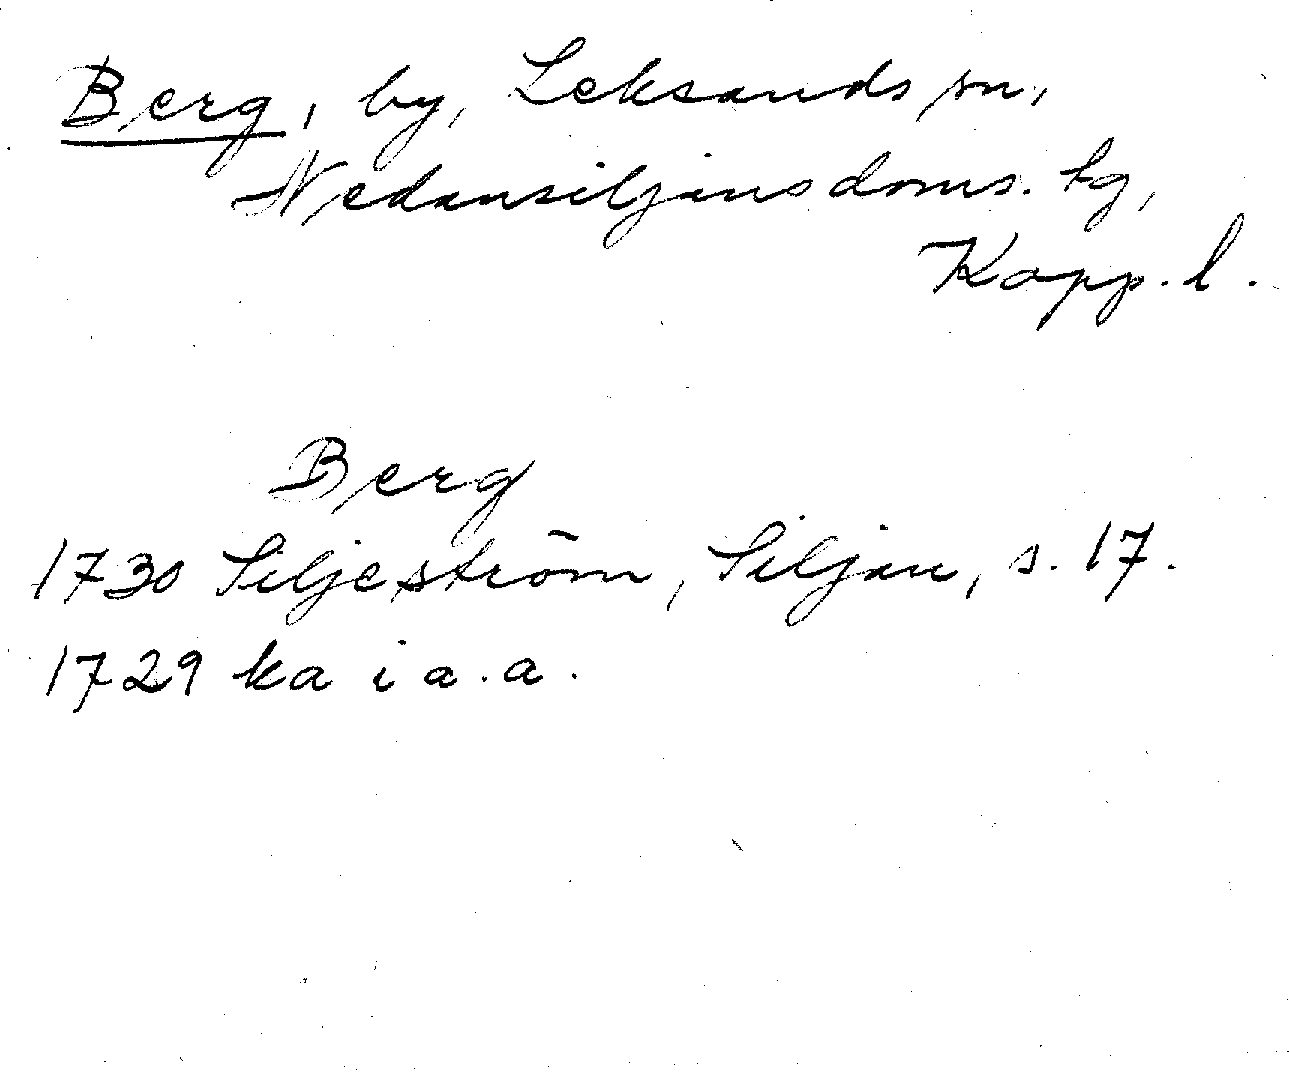 Berg, by, Leksands sn,
Nedansiljans doms. tg,
Kopp. l.
Berg
1730 Siljeström, Siljan, s. 17.
1729 ka i a. a.